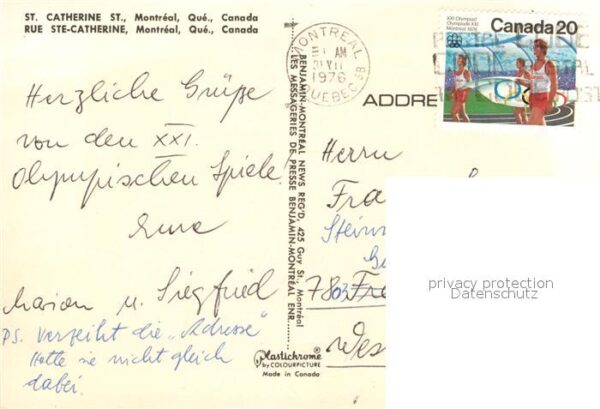 ST. CATHERINE ST., Montréal, Qué., Canada
RUE STE-CATHERINE, Montréal, Qué., Canada
Herzliche Grüße
von den XXI.
Olympischen Spiele
Eure
Marion u. Siegfried
PS. Verzeiht die „Adresse"
Hatte sie nicht gleich
dabei.
BENJAMIN-MONTREAL NEWS REG'D, 425 Guy St., Montréal
LES MESSAGERIES DE PRESSE BENJAMIN-MONTRÉAL ENR.
Plastichrome®
by COLOURPICTURE
Made in Canada
MONTREAL
AM
31 VII
1976
QUEBEC
XXI Olympiad
Olympiade XXI
Montréal 1976
Canada 20
ADDRE
Herrn
Fra
Steinw
78
03
Fre
Wes
privacy protection
Datenschutz